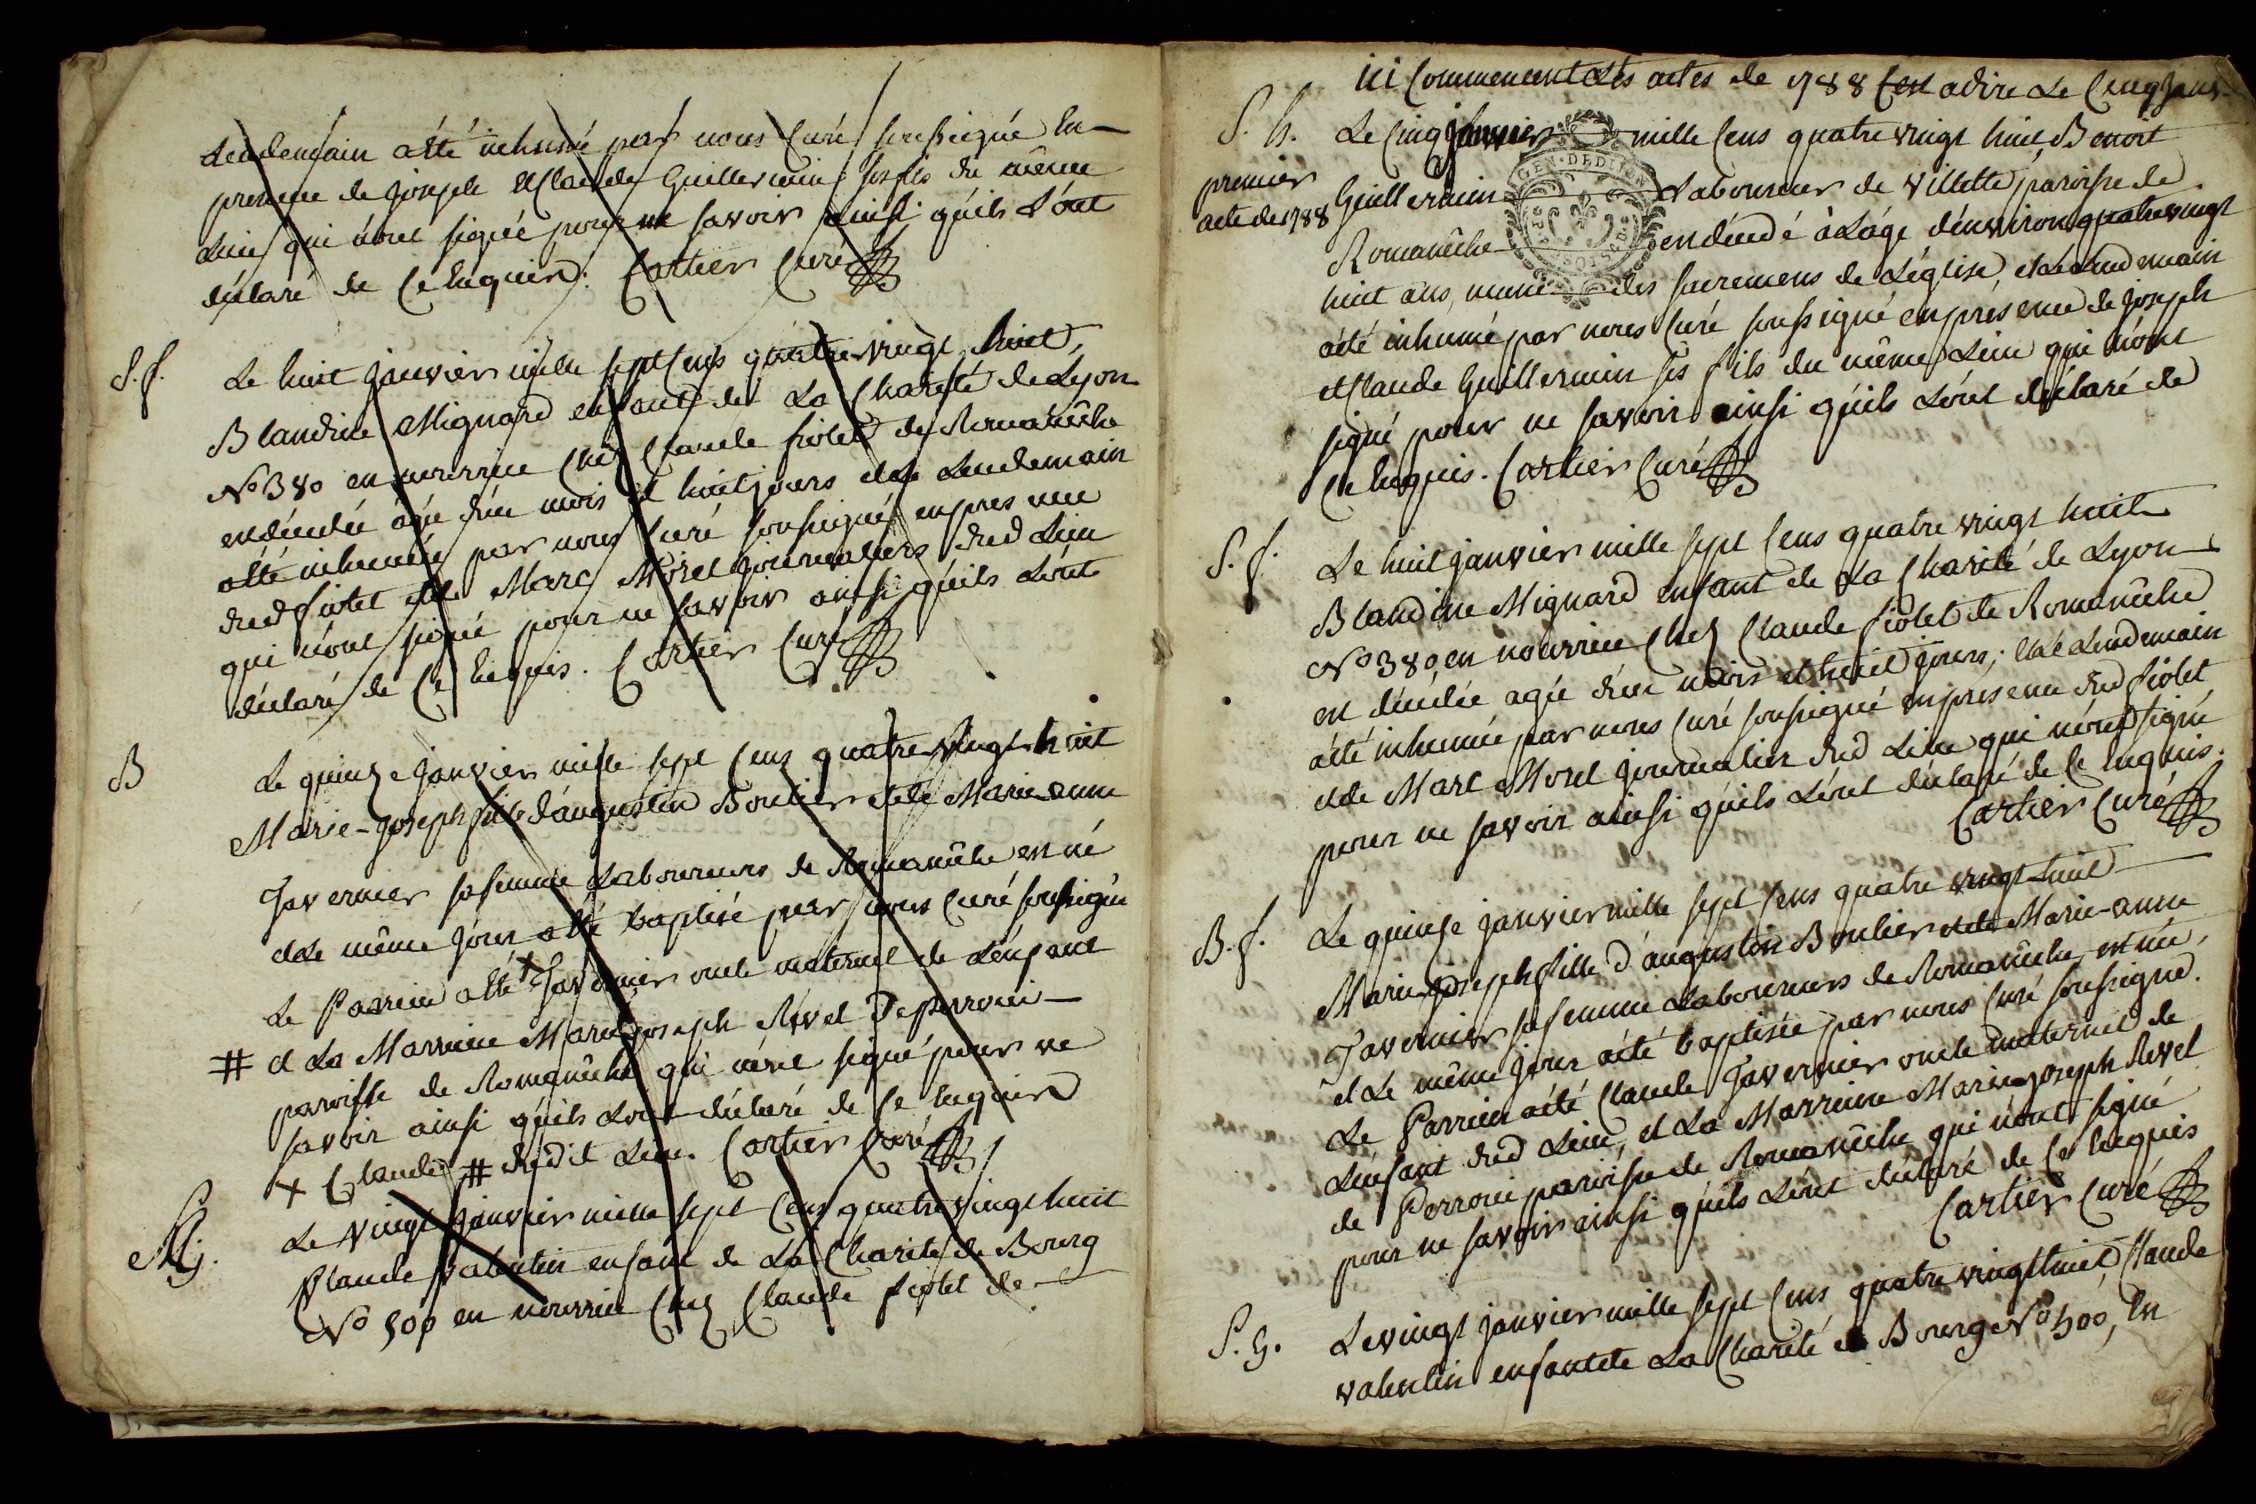 Lendemain a été inhumé par nous Curé soussigné en
presence de joseph et Claude Guillermin ses fils du même
Lieu qui n'ont signé pour ne savoir ainsi qu'ils L'ont
déclaré de Ce Enquis. Cartier Curé
S. f. Le huit janvier mille sept Cens quatre vingt huit,
Blandine Mignard enfant de La Charité de Lyon
No 380 en nourrice Chez Claude fiolet de Romanêche
est décédée agée d'un mois et huit jours et Le Lendemain
a été inhumée par nous Curé soussigné en presence
dud fiolet et de Marc Morel journaliers dud Lieu
qui n'ont signé pour ne savoir ainsi qu'ils L'ont
déclaré de Ce Enquis. Cartier Curé
B Le quinze janvier mille sept Cens quatre vingt huit
Marie-joseph fille d'augustin Boulier et de Marie-anne
Tavernier sa femme Laboureurs de Romanêche est né
et Le même jour a été baptisé par nous Curé soussigné
Le Parrein a été + Tavernier oncle maternel de L'enfant
# et La Marreine Marie joseph Revel De perroui
paroisse de Romanêche qui n'ont signé pour ne
savoir ainsi qu'ils L'ont déclaré de Ce Enquis
+ Claude # dudit Lieu. Cartier Curé
Le vingt janvier mille sept Cens quatre vingt huit
Claude valentin enfant de La Charité de Bourg
No 500 en nourrice Chez Claude fiolet de
ici Commencent Les actes de 1788 C'est a dire Le Cinq janv.
S. h. Le Cinq janvier mille Cens quatre vingt huit, Benoit
premier
acte de 1788
Guillermin Laboureur de villette, paroisse de
Romanêche est décédé à L'age d'environ quatre vingt
huit ans, muni des sacremens de L'église, et Le Lendemain
a été inhumé par nous Curé soussigné en présence de joseph
et Claude Guillermin ses fils du même Lieu qui n'ont
signé pour ne savoir ainsi qu'ils L'ont déclaré de
Ce Enquis. Cartier Curé
S. f. Le huit janvier mille sept Cens quatre vingt huit
Blandine Mignard enfant de La Charité de Lyon
No 380 en nourrice Chez Claude fiolet de Romanêche
est décédée agée d'un mois et huit jours; et Le Lendemain
a été inhumée par nous Curé soussigné en présence dud fiolet
et de Marc Morel journalier dud Lieu qui n'ont signé
pour ne savoir ainsi qu'ils L'ont déclaré de Ce Enquis.
Cartier Curé
B. f. Le quinse janvier mille sept Cens quatre vingt huit
Marie-joseph fille d'augustin Boulier et de Marie-anne
Tavernier sa femme Laboureurs de Romanêche, est née,
et Le même jour a été baptisée par nous Curé soussigné.
Le Parrein a été Claude Tavernier oncle maternel de
L'enfant dud Lieu, et La Marreine Marie joseph Revel
de Perroui paroisse de Romanêche qui n'ont signé
pour ne savoir ainsi qu'ils L'ont déclaré de Ce Enquis
Cartier Curé
S. G. Le vingt janvier mille sept Cens quatre vingt huit Claude
valentin enfant de La Charité de Bourg No 500, En